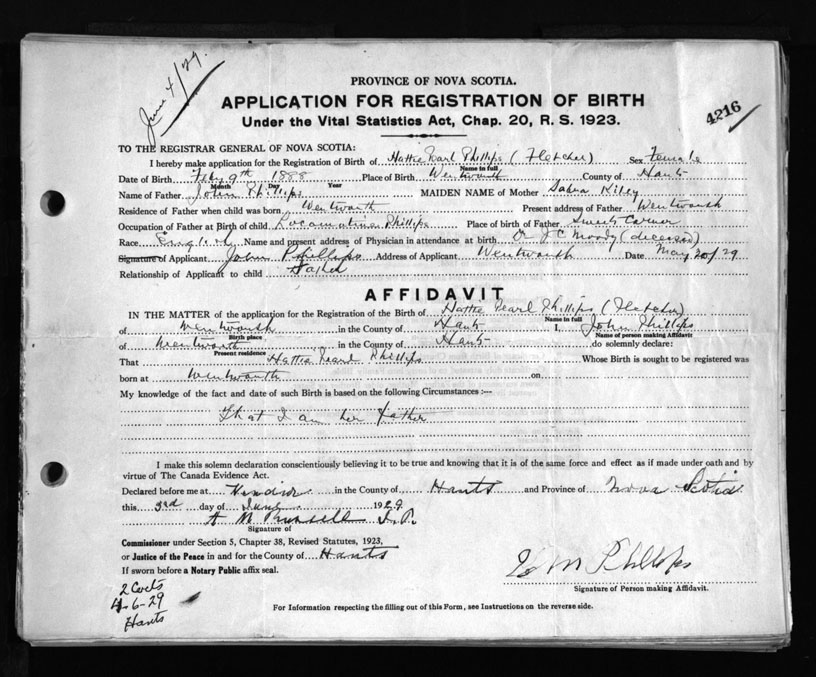 June 4/29.
PROVINCE OF NOVA SCOTIA.
APPLICATION FOR REGISTRATION OF BIRTH
Under the Vital Statistics Act, Chap. 20, R. S. 1923.
4216
TO THE REGISTRAR GENERAL OF NOVA SCOTIA:
I hereby make application for the Registration of Birth of Hattie Pearl Phillips (Fletcher) Sex Female
Name in full
Date of Birth Feby 9th 1888 Place of Birth Wentworth County of Hants
Month Day Year
Name of Father John Phillips MAIDEN NAME of Mother
Residence of Father when child was born Wentworth Present address of Father Wentworth
Occupation of Father at Birth of child Phillips Place of birth of Father Sweets Corner
Race English Name and present address of Physician in attendance at birth Dr J C Moody (deceased)
Signature of Applicant John Phillips Address of Applicant Wentworth Date May 20/29
Relationship of Applicant to child Father
AFFIDAVIT
IN THE MATTER of the application for the Registration of the Birth of Hattie Pearl Phillips (Fletcher)
Name in full
of Wentworth in the County of Hants I, John Phillips
Birth place Name of person making Affidavit
of Wentworth in the County of Hants do solemnly declare:
Present residence
That Hattie Pearl Phillips Whose Birth is sought to be registered was
born at Wentworth on
My knowledge of the fact and date of such Birth is based on the following Circumstances :--
That I am her Father
I make this solemn declaration conscientiously believing it to be true and knowing that it is of the same force and effect as if made under oath and by
virtue of The Canada Evidence Act.
Declared before me at Windsor in the County of Hants and Province of Nova Scotia
this 3rd day of June 1929
A M J.P.
Signature of
Commissioner under Section 5, Chapter 38, Revised Statutes, 1923,
or Justice of the Peace in and for the County of Hants
If sworn before a Notary Public affix seal.
Phillips
Signature of Person making Affidavit.
2 Certs
4-6-29
Hants
For Information respecting the filling out of this Form, see Instructions on the reverse side.